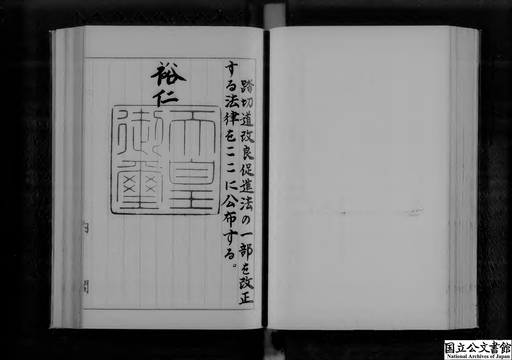 踏切道改良促進法の一部を改正
する法律をここに公布する。
裕仁
天皇
御璽
内閣
国立公文書館
National Archives of Japan